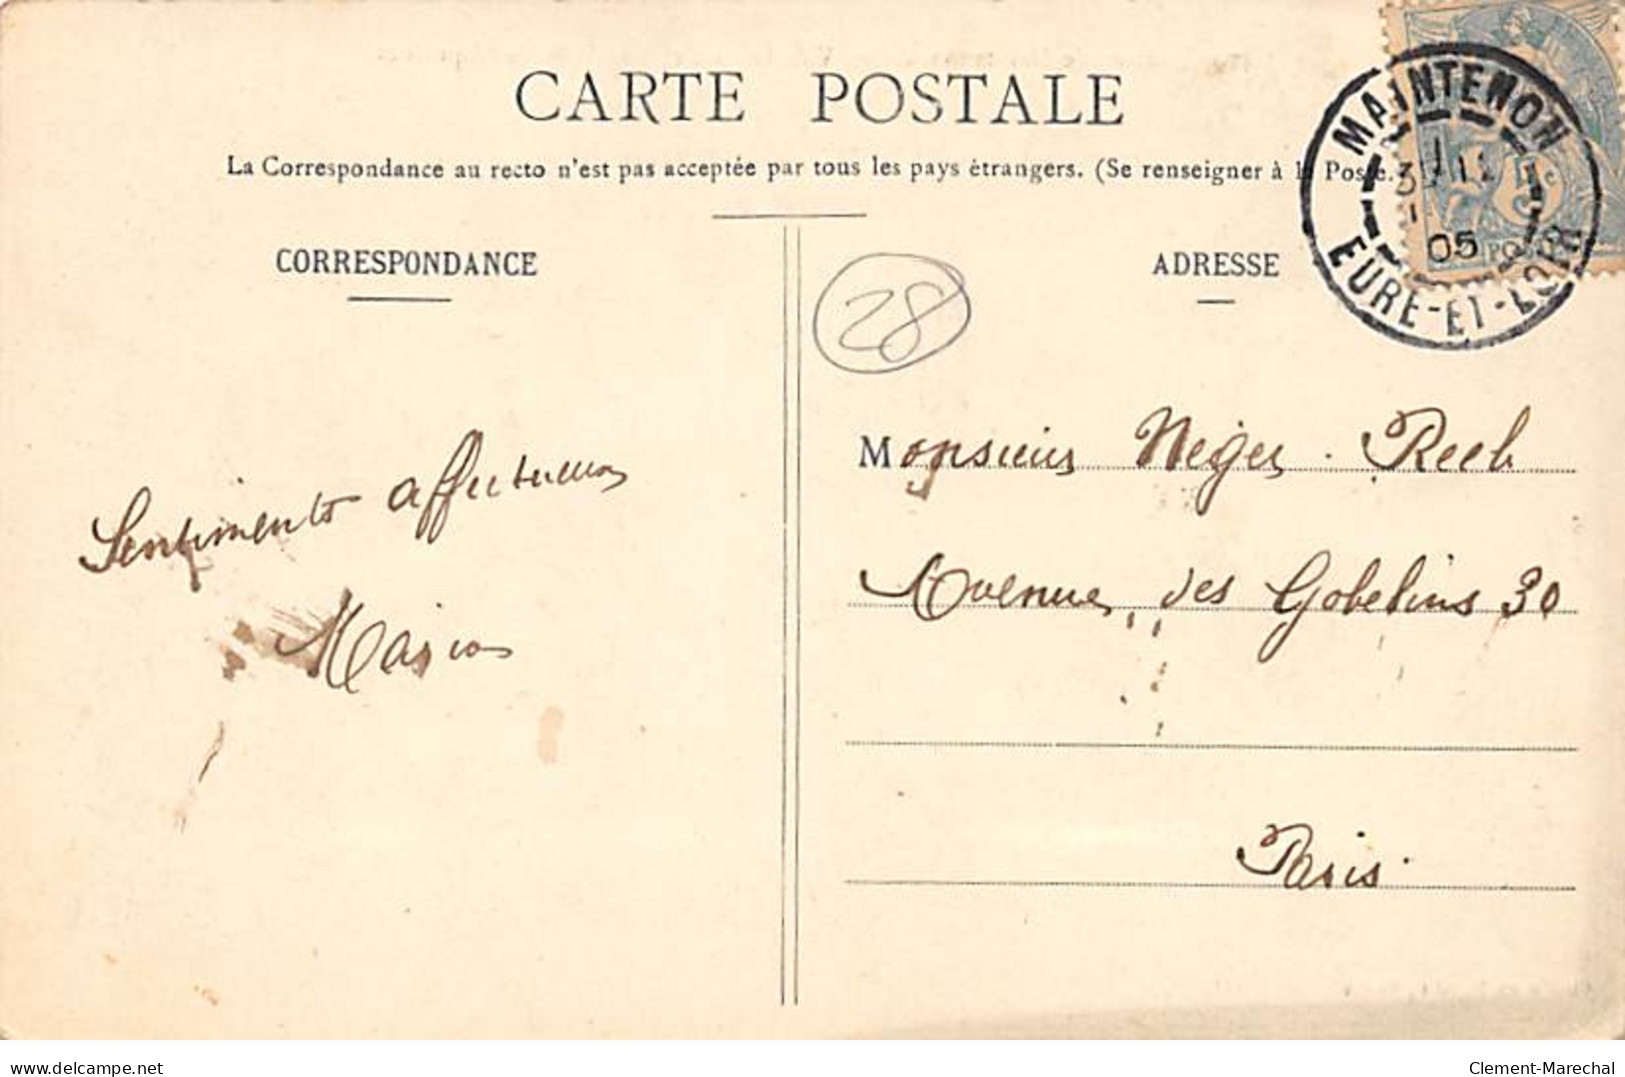 CARTE POSTALE
La Correspondance au recto n'est pas acceptée par tous les pays étrangers. (Se renseigner à la Poste.
CORRESPONDANCE
ADRESSE
MAINTENON
05
EURE-ET-LOIR
5c
28
Sentiments affectueux
Monsieur Neger. Reeb
Avenue des Gobelins 30
Paris.
delcampe.net
Clement-Marechal